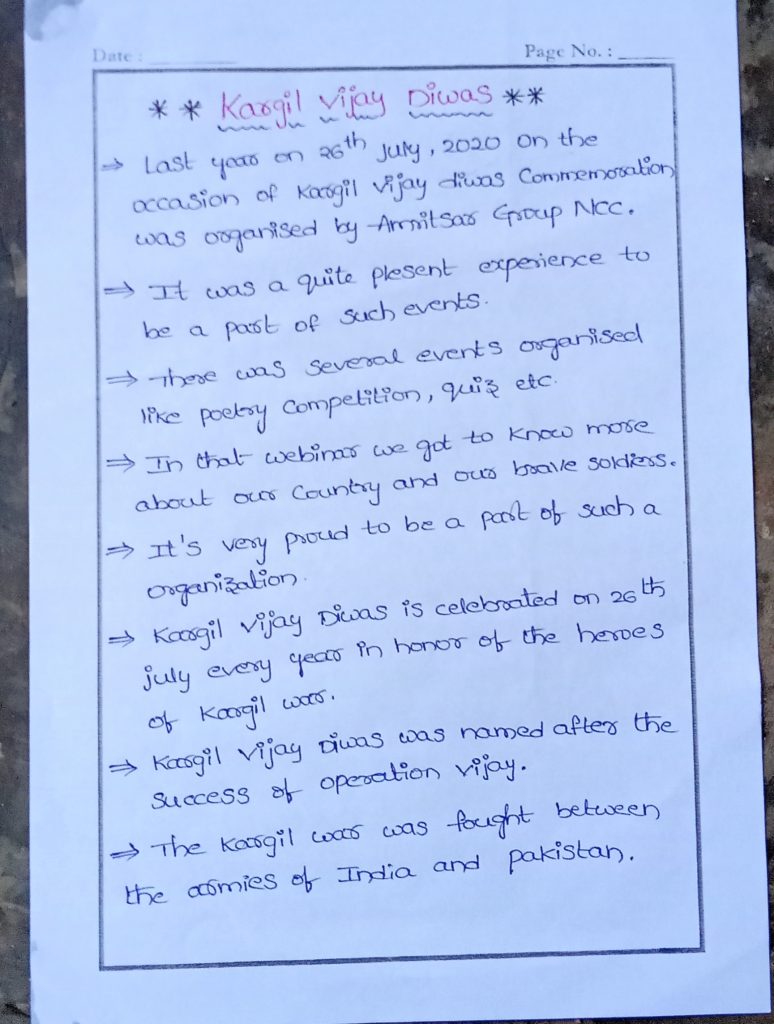 Date : Page No. :
** Kargil Vijay Diwas **
⇒ Last year on 26th July, 2020 on the
occasion of Kargil Vijay diwas Commemoration
was organised by Amritsar Group NCC.
⇒ It was a quite plesent experience to
be a part of such events.
⇒ There was several events organised
like poetry competition, quiz etc.
⇒ In that webinar we got to know more
about our Country and our brave soldiers.
⇒ It's very proud to be a part of such a
organization.
⇒ Kargil Vijay Diwas is celebrated on 26th
july every year in honor of the heroes
of Kargil war.
⇒ Kargil Vijay Diwas was named after the
success of operation vijay.
⇒ The Kargil war was fought between
the armies of India and pakistan.